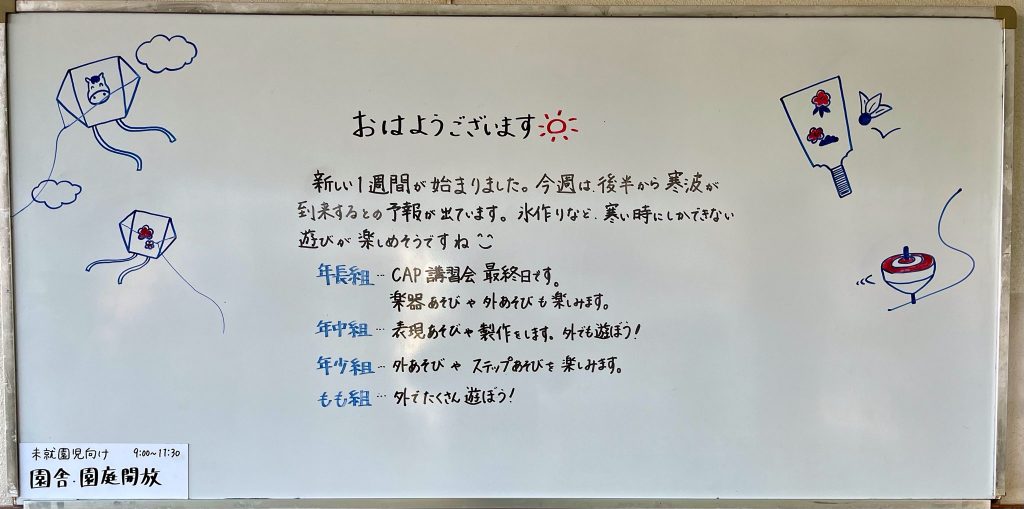 おはようございます
新しい1週間が始まりました。今週は、後半から寒波が
到来するとの予報が出ています。氷作りなど、寒い時にしかできない
遊びが楽しめそうですね
年長組…CAP講習会最終日です。
楽器あそびや外あそびも楽しみます。
年中組…表現あそびや製作をします。外でも遊ぼう!
年少組…外あそびやステップあそびを楽しみます。
もも組…外でたくさん遊ぼう!
未就園児向け 9:00~11:30
園舎・園庭開放